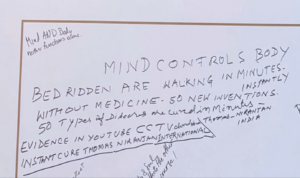 Mind AND Body
MIND CONTROLS BODY
BED RIDDEN ARE WALKING IN MINUTES.
INSTANTLY
WITHOUT MEDICINE. 50 NEW INVENTIONS.
50 TYPES OF Diseases are cured in Minutes -
EVIDENCE IN YOUTUBE CCTV Thomas - NIRANJAN
INDIA
INSTANT CURE THOMAS NIRANJAN INTERNATIONAL